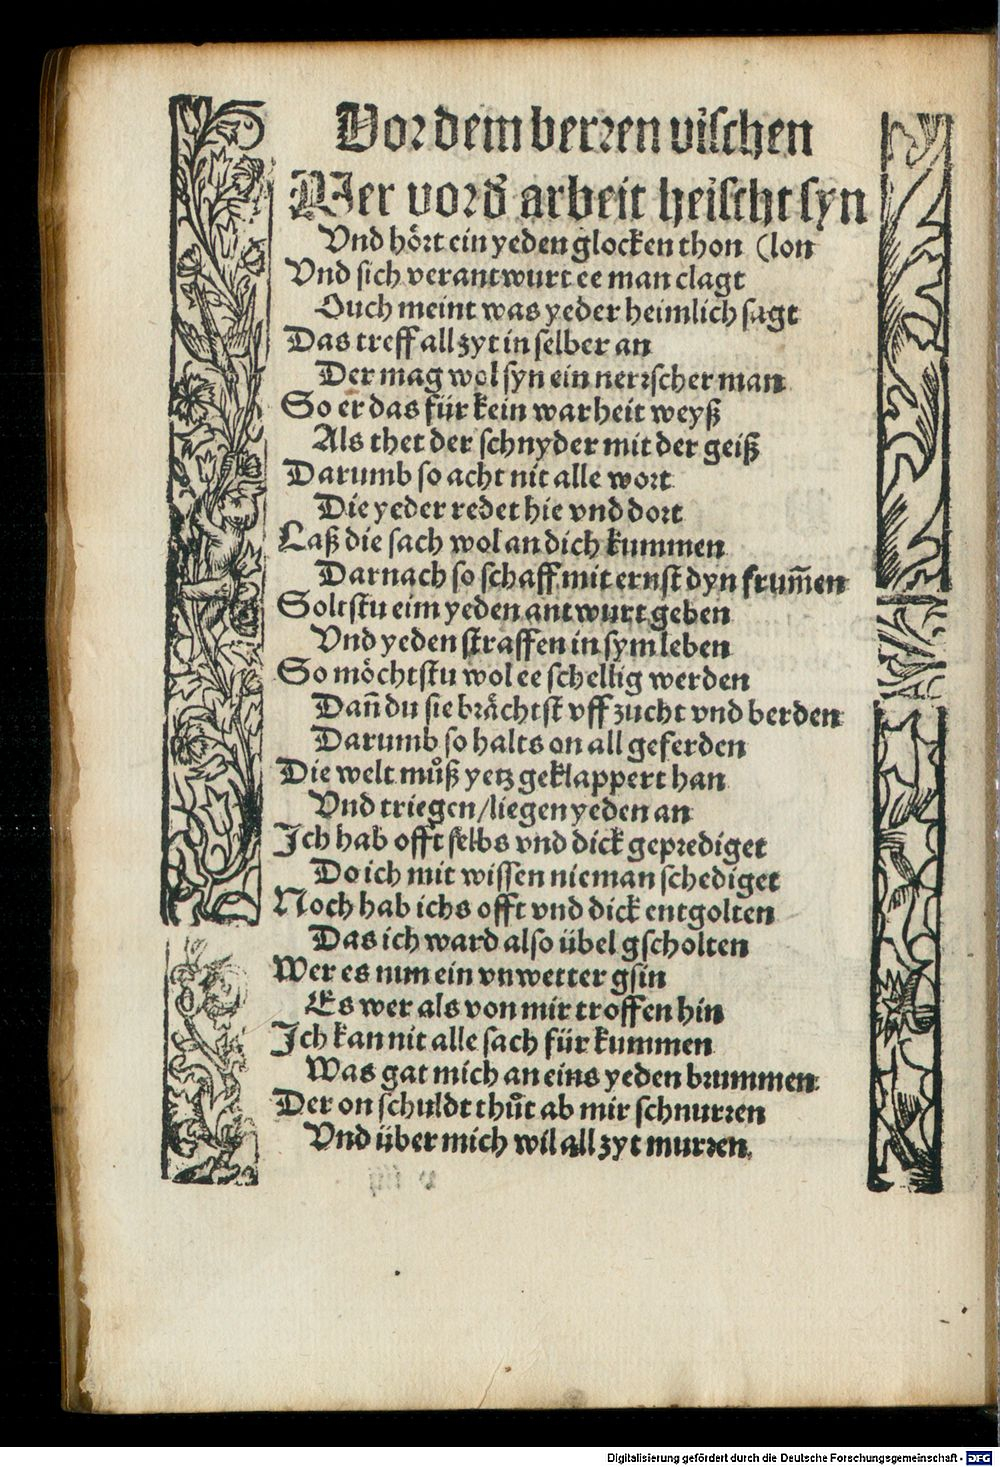 Vor dem berren vischen
Wer vorď arbeit heischt syn
Vnd hört ein yeden glocken thon (lon
Vnd sich verantwurt ee man clagt
Ouch meint was yeder heimlich sagt
Das treff all zyt in selber an
Der mag wol syn ein nerrscher man
So er das für kein warheit weyß
Als thet der schnyder mit der geiß
Darumb so acht nit alle wort
Die yeder redet hie vnd dort
Laß die sach wol an dich kummen
Darnach so schaff mit ernst dyn frum̄en
Soltstu eim yeden antwurt geben
Vnd yeden straffen in sym leben
So möchtstu wol ee schellig werden
Dan̄ du sie brächtst vff zucht vnd berden
Darumb so halts on all geferden
Die welt můß yetz geklappert han
Vnd triegen/liegen yeden an
Ich hab offt selbs vnd dick geprediget
Do ich mit wissen nieman schediget
Noch hab ichs offt vnd dick entgolten
Das ich ward also übel gscholten
Wer es nun ein vnwetter gsin
Es wer als von mir troffen hin
Ich kan nit alle sach für kummen
Was gat mich an eins yeden brummen
Der on schuldt thůt ab mir schnurren
Vnd über mich wil all zyt murren
Digitalisierung gefördert durch die Deutsche Forschungsgemeinschaft - DFG